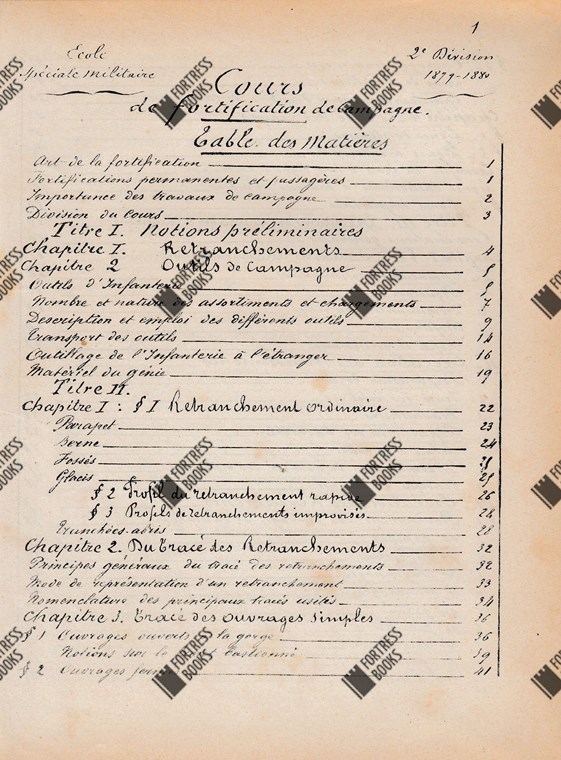 1
Ecole
Spéciale Militaire
2e Division
1879-1880
Cours
de fortification de Campagne.
Table des Matières
Art de la fortification 1
Fortifications permanentes et passagères 1
Importance des travaux de campagne 2
Division du Cours 3
Titre I. Notions préliminaires
Chapitre I. Retranchements 4
Chapitre 2 Outils de Campagne 5
Outils d'Infanterie
Nombre et nature des assortiments et chargements 7
Description et emploi des différents outils 9
Transport des outils 14
Outillage de l'Infanterie à l'étranger 16
Matériel du génie 19
Titre II.
Chapitre I : § I Retranchement ordinaire 22
Parapet 23
Berme 24
Fossés
Glacis 25
§ 2 Profil du retranchement rapide 26
§ 3 Profils de retranchements improvisés. 28
Tranchées-abris 28
Chapitre 2. Du Tracé des Retranchements 32
Principes généraux du tracé des retranchements 32
Mode de représentation d'un retranchement 33
Nomenclature des principaux tracés usités 34
Chapitre 3. Tracé des Ouvrages Simples 36
§ 1 Ouvrages ouverts à la gorge 36
Notions sur le bastionné 39
§ 2 Ouvrages 41
FORTRESS BOOKS